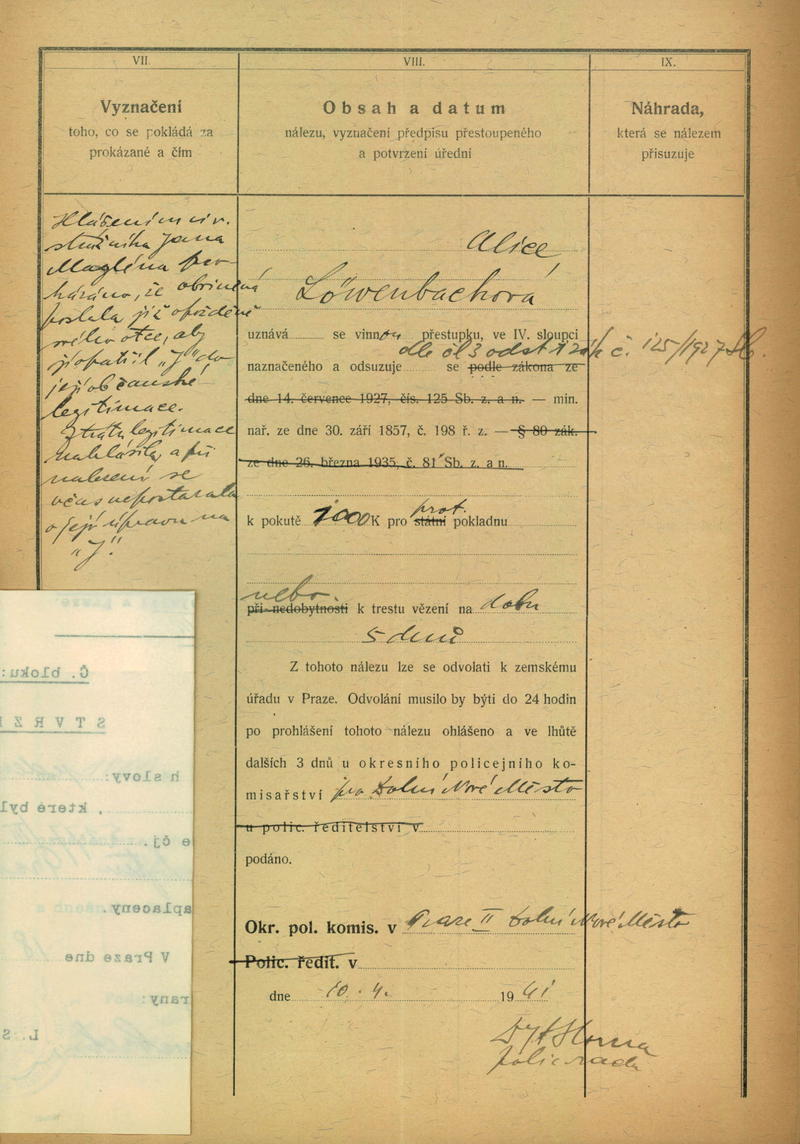 VII.
Vyznačení
toho, co se pokládá za
prokázané a čím
VIII.
Obsah a datum
nálezu, vyznačení předpisu přestoupeného
a potvrzení úřední
IX.
Náhrada,
která se nálezem
přisuzuje
Hlášením
strážníka Jana
že obviněná
otce, aby
"J" do
její občanské
legitimace.
Ztrátu legitimace
nahlásila, a při
nalezení se
včas nepostarala
o její úpravu na
"J".
Alice
Löwenbachová
uznává se vinnou přestupku, ve IV. sloupci
dle čl 3 odst 1 zák č. 125/1927 Sb.
naznačeného a odsuzuje se podle zákona ze
dne 14. července 1927, čís. 125 Sb. z. a n. — min.
nař. ze dne 30. září 1857, č. 198 ř. z. — § 80 zák.
ze dne 26. března 1935, č. 81 Sb. z. a n.
prot.
k pokutě 1000 K pro státní pokladnu
nebo
při nedobytnosti k trestu vězení na dobu
5 dnů
Z tohoto nálezu lze se odvolati k zemskému
úřadu v Praze. Odvolání musilo by býti do 24 hodin
po prohlášení tohoto nálezu ohlášeno a ve lhůtě
dalších 3 dnů u okresního policejního ko-
misařství pro Dolní Nové Město
u polic. ředitelství v
podáno.
Okr. pol. komis. v Praze II Dolní Nové Město
Polic. ředit. v
dne 10. 4. 1941
polic. rada
Č. bloku:
STVRZ
h slovy:
, které byl
e čj.
aplaceny.
V Praze dne
rany:
L. S